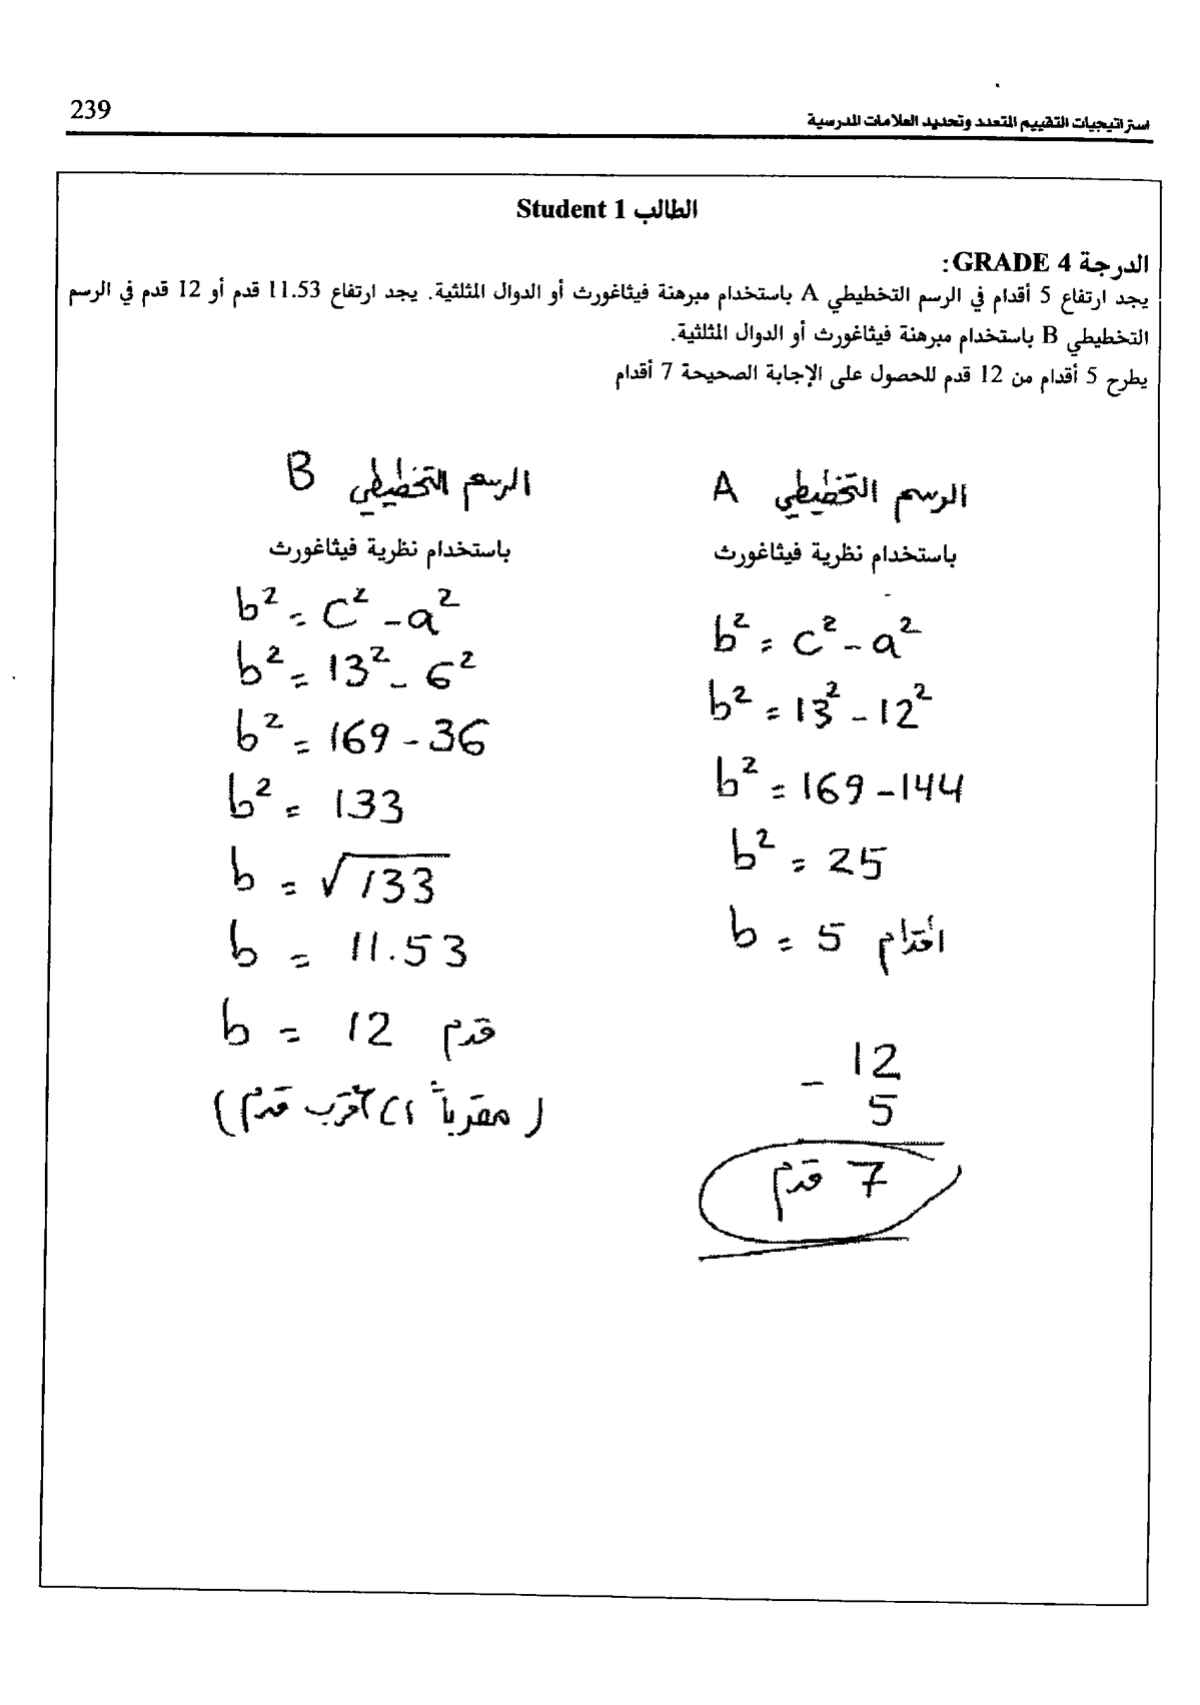 239
استراتيجيات التقييم المتعدد وتحديد العلامات المدرسية
الطالب Student 1
الدرجة GRADE 4:
يجد ارتفاع 5 أقدام في الرسم التخطيطي A باستخدام مبرهنة فيثاغورث أو الدوال المثلثية. يجد ارتفاع 11.53 قدم أو 12 قدم في الرسم
التخطيطي B باستخدام مبرهنة فيثاغورث أو الدوال المثلثية.
يطرح 5 أقدام من 12 قدم للحصول على الإجابة الصحيحة 7 أقدام
الرسم التخطيطي A
باستخدام نظرية فيثاغورث
b² = c² - a²
b² = 13² - 12²
b² = 169 - 144
b² = 25
b = 5 أقدام
12
- 5
7 قدم
الرسم التخطيطي B
باستخدام نظرية فيثاغورث
b² = c² - a²
b² = 13² - 6²
b² = 169 - 36
b² = 133
b = √133
b = 11.53
b = 12 قدم
(مقرباً لأقرب قدم)